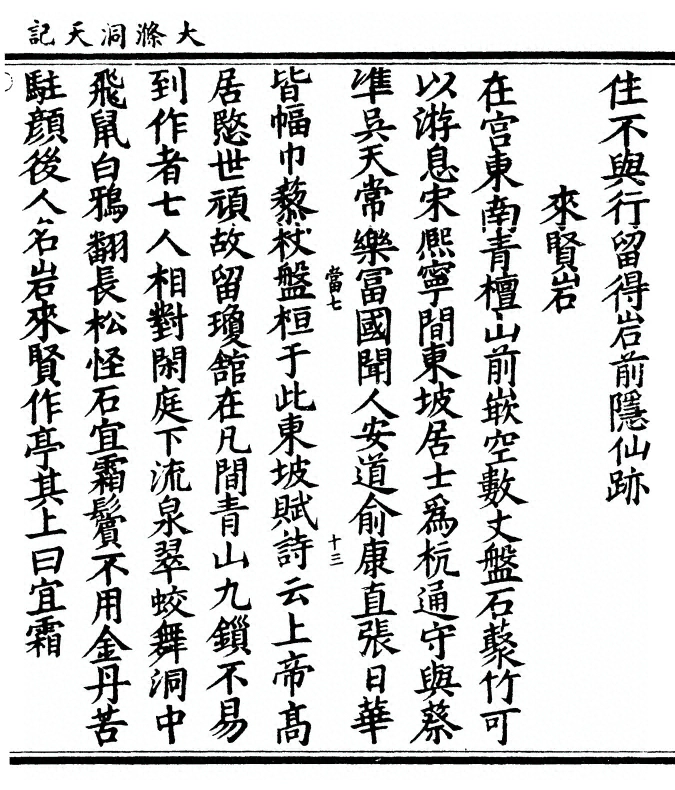 大滌洞天記
住不與行留得岩前隱仙跡
來賢岩
在宮東南青檀山前嵌空數丈盤石藂竹可
以游息宋熈寧間東坡居士爲杭通守與蔡
準吳天常樂冨國聞人安道俞康直張日華
當七
十三
皆幅巾藜杖盤桓于此東坡賦詩云上帝髙
居愍世頑故留瓊舘在凡間青山九鎻不易
到作者七人相對閑庭下流泉翠蛟舞洞中
飛鼠白鴉翻長松怪石宜霜鬢不用金丹苦
駐顔後人名岩來賢作亭其上曰宜霜